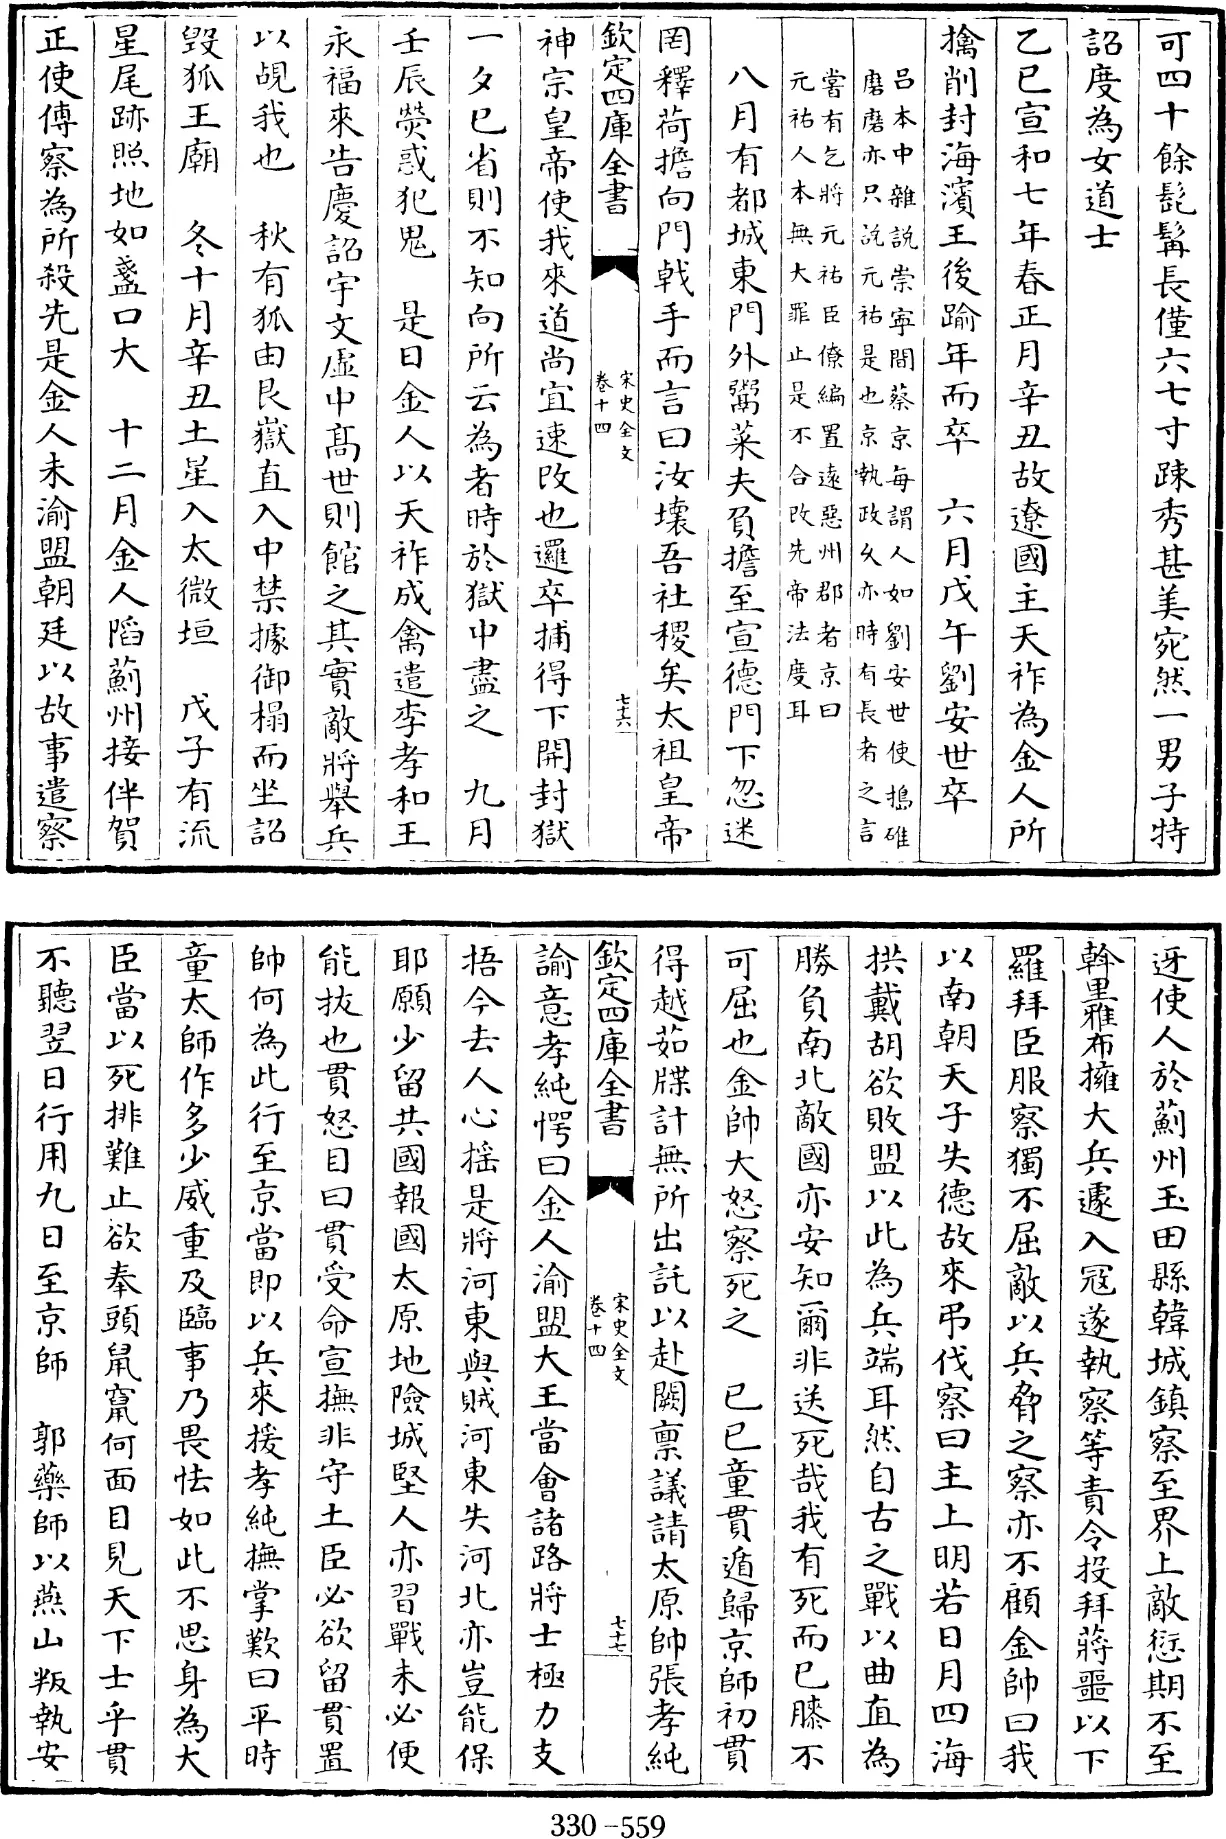 可四十餘髭髯長僅六七寸踈秀甚美宛然一男子特
詔度為女道士
乙巳宣和七年春正月辛丑故遼國主天祚為金人所
擒削封海濱王後踰年而卒　六月戊午劉安世卒
呂本中雜説崇寧間蔡京每謂人如劉安世使搗碓
磨磨亦只説元祐是也京執政久亦時有長者之言
嘗有乞將元祐臣僚編置遠惡州郡者京曰
元祐人本無大罪止是不合改先帝法度耳
八月有都城東門外鬻菜夫負擔至宣德門下忽迷
罔釋荷擔向門戟手而言曰汝壞吾社稷矣太祖皇帝
欽定四庫全書
宋史全文
卷十四
七十六
神宗皇帝使我來道尚宜速改也邏卒捕得下開封獄
一夕已省則不知向所云為者時於獄中盡之　九月
壬辰熒惑犯鬼　是日金人以天祚成禽遣李孝和王
永福來告慶詔宇文虛中髙世則館之其實敵將舉兵
以覘我也　秋有狐由艮嶽直入中禁據御榻而坐詔
毀狐王廟　冬十月辛丑土星入太微垣　戊子有流
星尾跡照地如盞口大　十二月金人䧟薊州接伴賀
正使傅察為所殺先是金人未渝盟朝廷以故事遣察
迓使人於薊州玉田縣韓城鎮察至界上敵愆期不至
斡里雅布擁大兵遽入冦遂執察等責令投拜蔣噩以下
羅拜臣服察獨不屈敵以兵脅之察亦不顧金帥曰我
以南朝天子失德故來弔伐察曰主上明若日月四海
拱戴胡欲敗盟以此為兵端耳然自古之戰以曲直為
勝負南北敵國亦安知爾非送死哉我有死而已膝不
可屈也金帥大怒察死之　己巳童貫遁歸京師初貫
得越茹牒計無所出託以赴闕禀議請太原帥張孝純
欽定四庫全書
宋史全文
卷十四
七十七
諭意孝純愕曰金人渝盟大王當會諸路將士極力支
捂今去人心揺是將河東與賊河東失河北亦豈能保
耶願少留共國報國太原地險城堅人亦習戰未必便
能拔也貫怒目曰貫受命宣撫非守土臣必欲留貫置
帥何為此行至京當即以兵來援孝純撫掌歎曰平時
童太師作多少威重及臨事乃畏怯如此不思身為大
臣當以死排難止欲奉頭鼠竄何面目見天下士乎貫
不聽翌日行用九日至京師　郭藥師以燕山叛執安
330-559